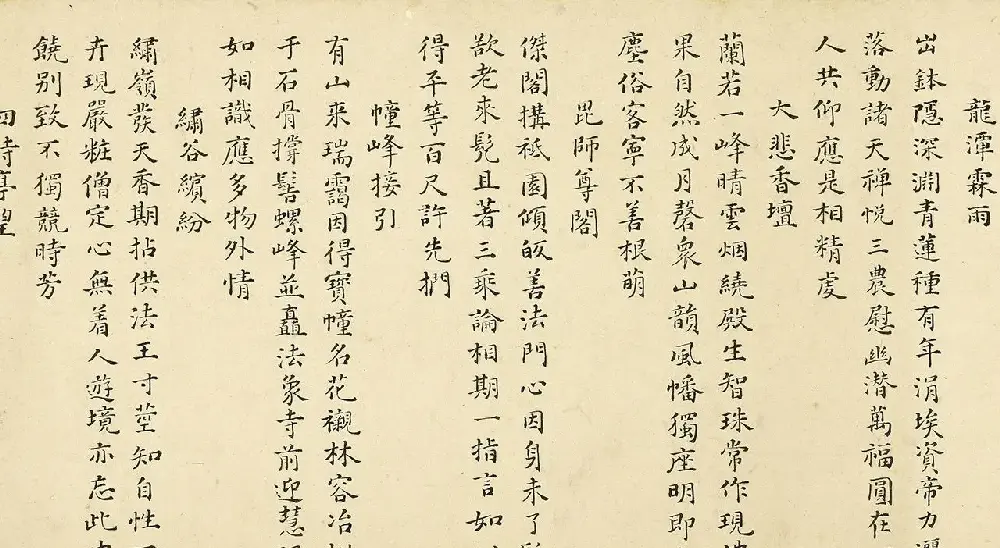 龍潭霖雨
出鉢隱深淵青蓮種有年涓埃資帝力
落動諸天禅悦三農慰幽潛萬福圓在
人共仰應是相精虔
大悲香壇
蘭若一峰晴雲烟繞殿生智珠常作現
果自然成月磬衆山韻風幡獨座明即
塵俗客寧不善根萌
毘師尊閣
傑閣搆祗園傾皈善法門心因身未了
欲老來髡且著三乘論相期一指言如
得平等百尺許先捫
幢峰接引
有山来瑞靄因得寶幢名花襯林容冶
于石骨撑髻螺峰並矗法象寺前迎慧
如相識應多物外情
繡谷繽紛
繡嶺發天香期拈供法王寸莖知自性
卉現嚴粧僧定心無着人遊境亦忘此
饒别致不獨競時芳
四時亭望